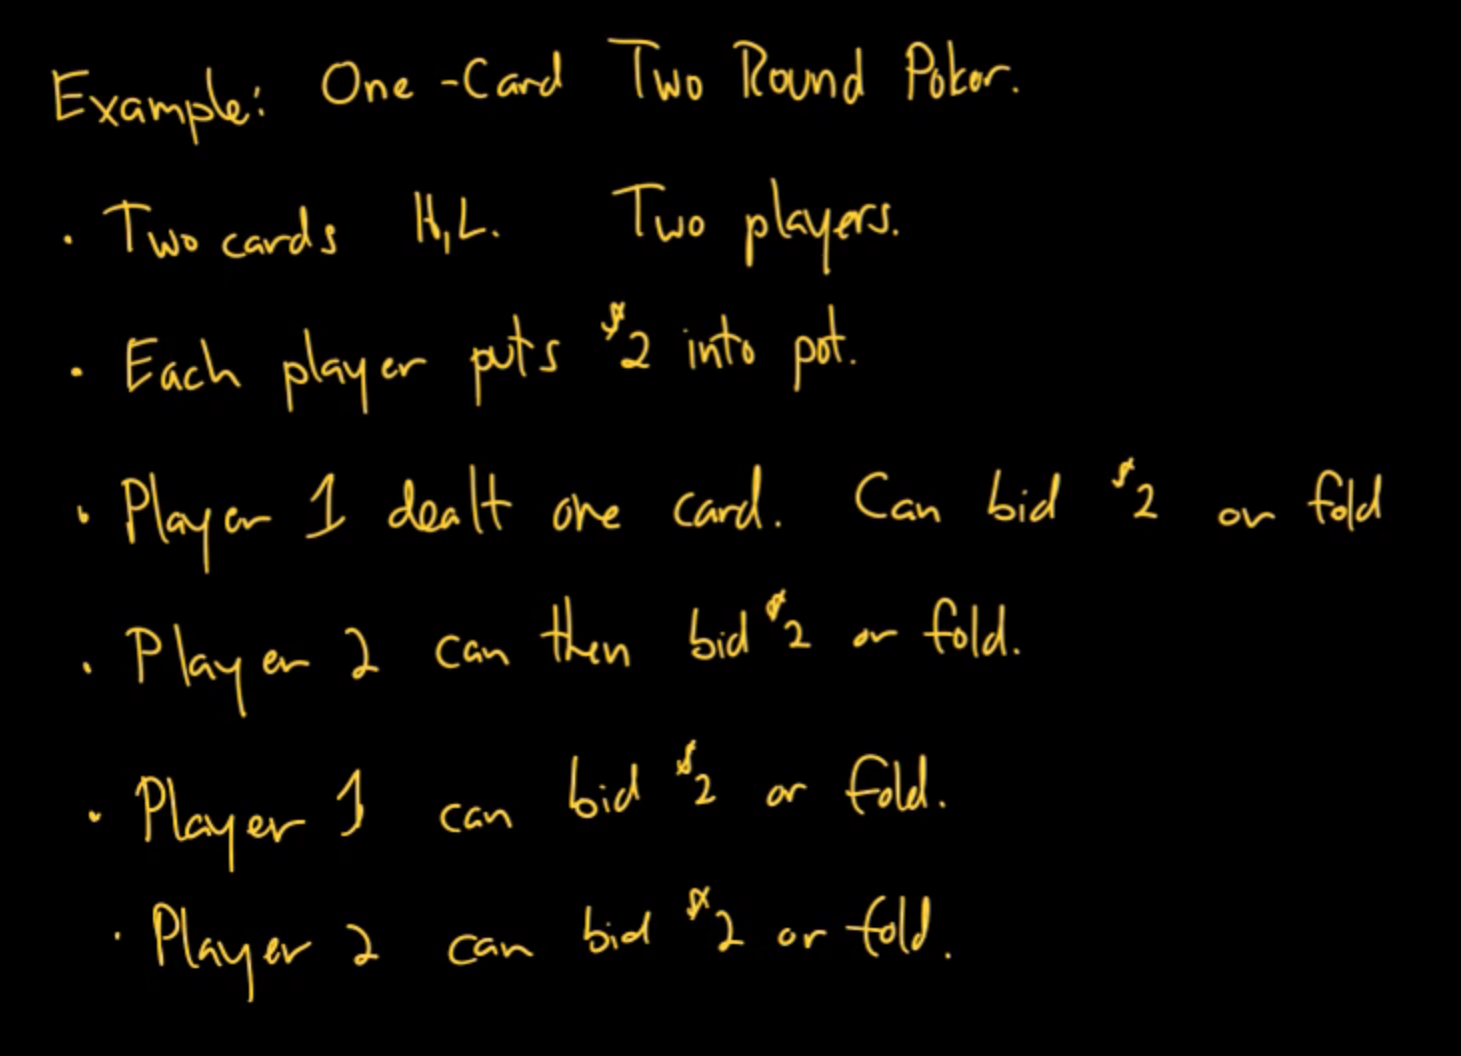 Example: One-Card Two Round Poker.
· Two cards H,L. Two players.
· Each player puts $2 into pot.
· Player 1 dealt one card. Can bid $2 or fold
· Player 2 can then bid $2 or fold.
· Player 1 can bid $2 or fold.
· Player 2 can bid $2 or fold.